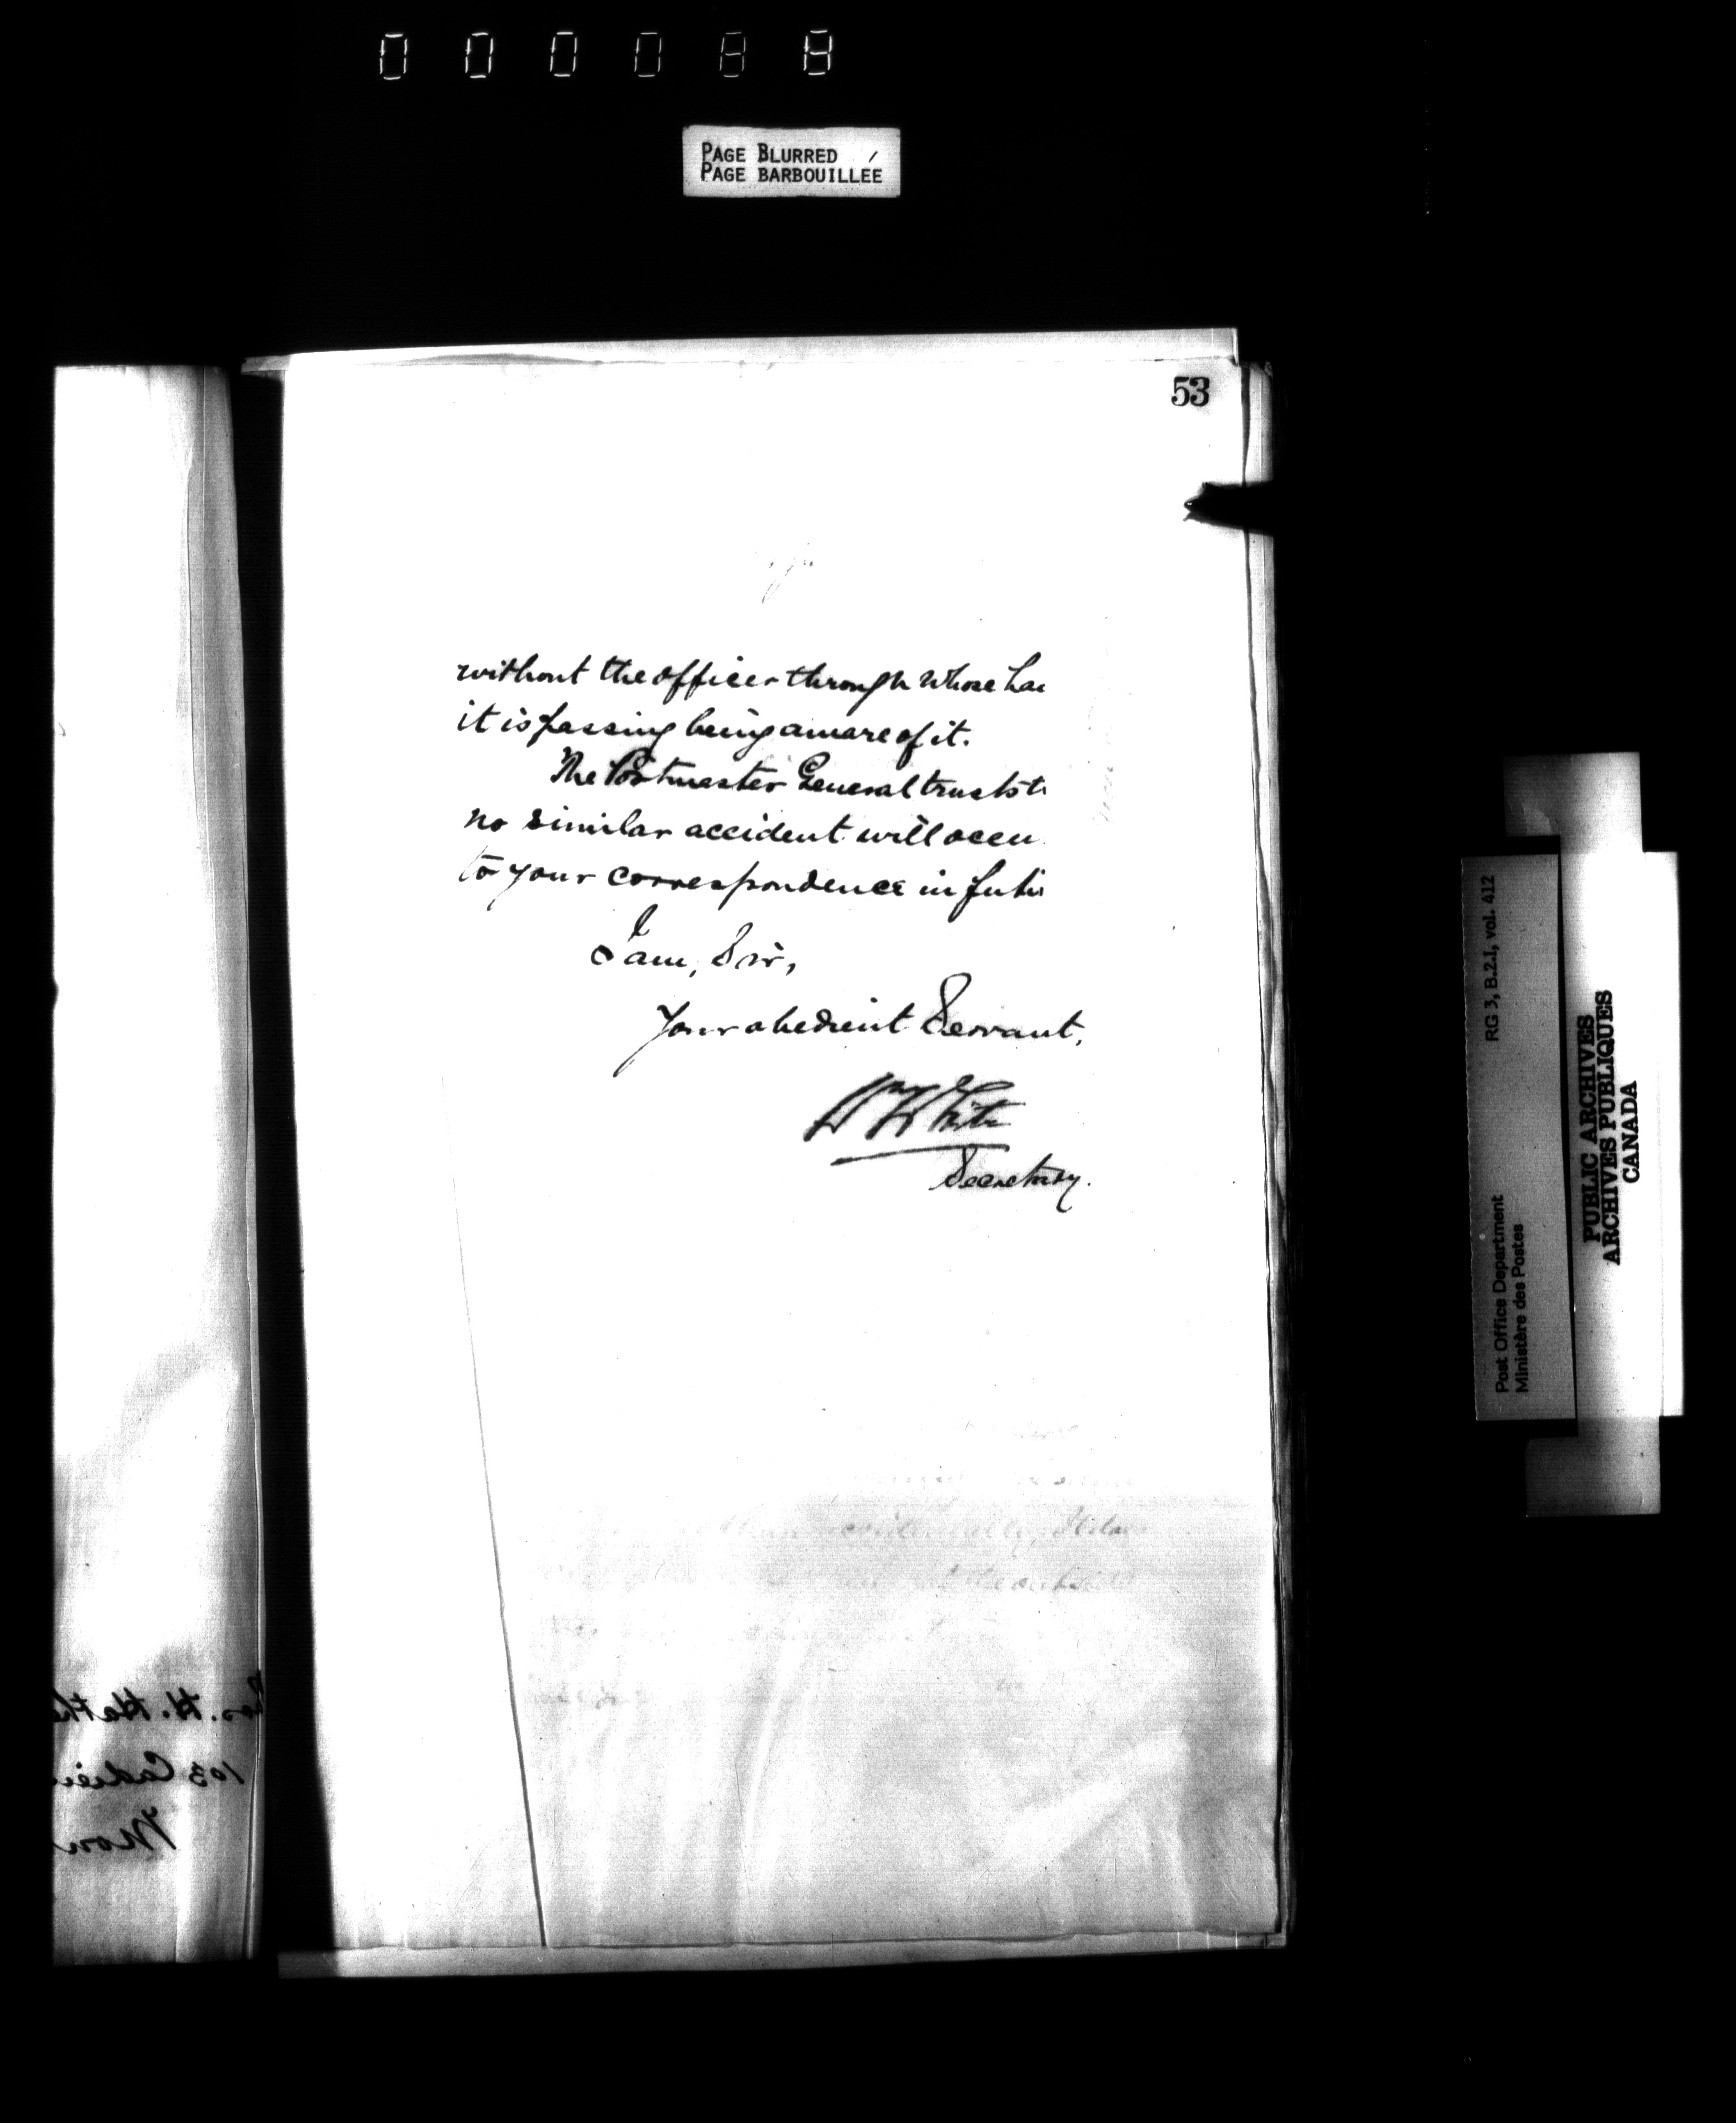 0 0 0 0 8 8
PAGE BLURRED
PAGE BARBOUILLÉE
53
without the officer through whose ha
it is passing being aware of it.
The Postmaster General trusts t
no similar accident will occu
to your correspondence in futu
I am, Sir,
Your obedient Servant,
Wm White
Secretary.
accidentally,
H. Hath
103 Cadieu
Mon
RG 3, B.2.1, vol. 412
Post Office Department
Ministère des Postes
PUBLIC ARCHIVES
ARCHIVES PUBLIQUES
CANADA